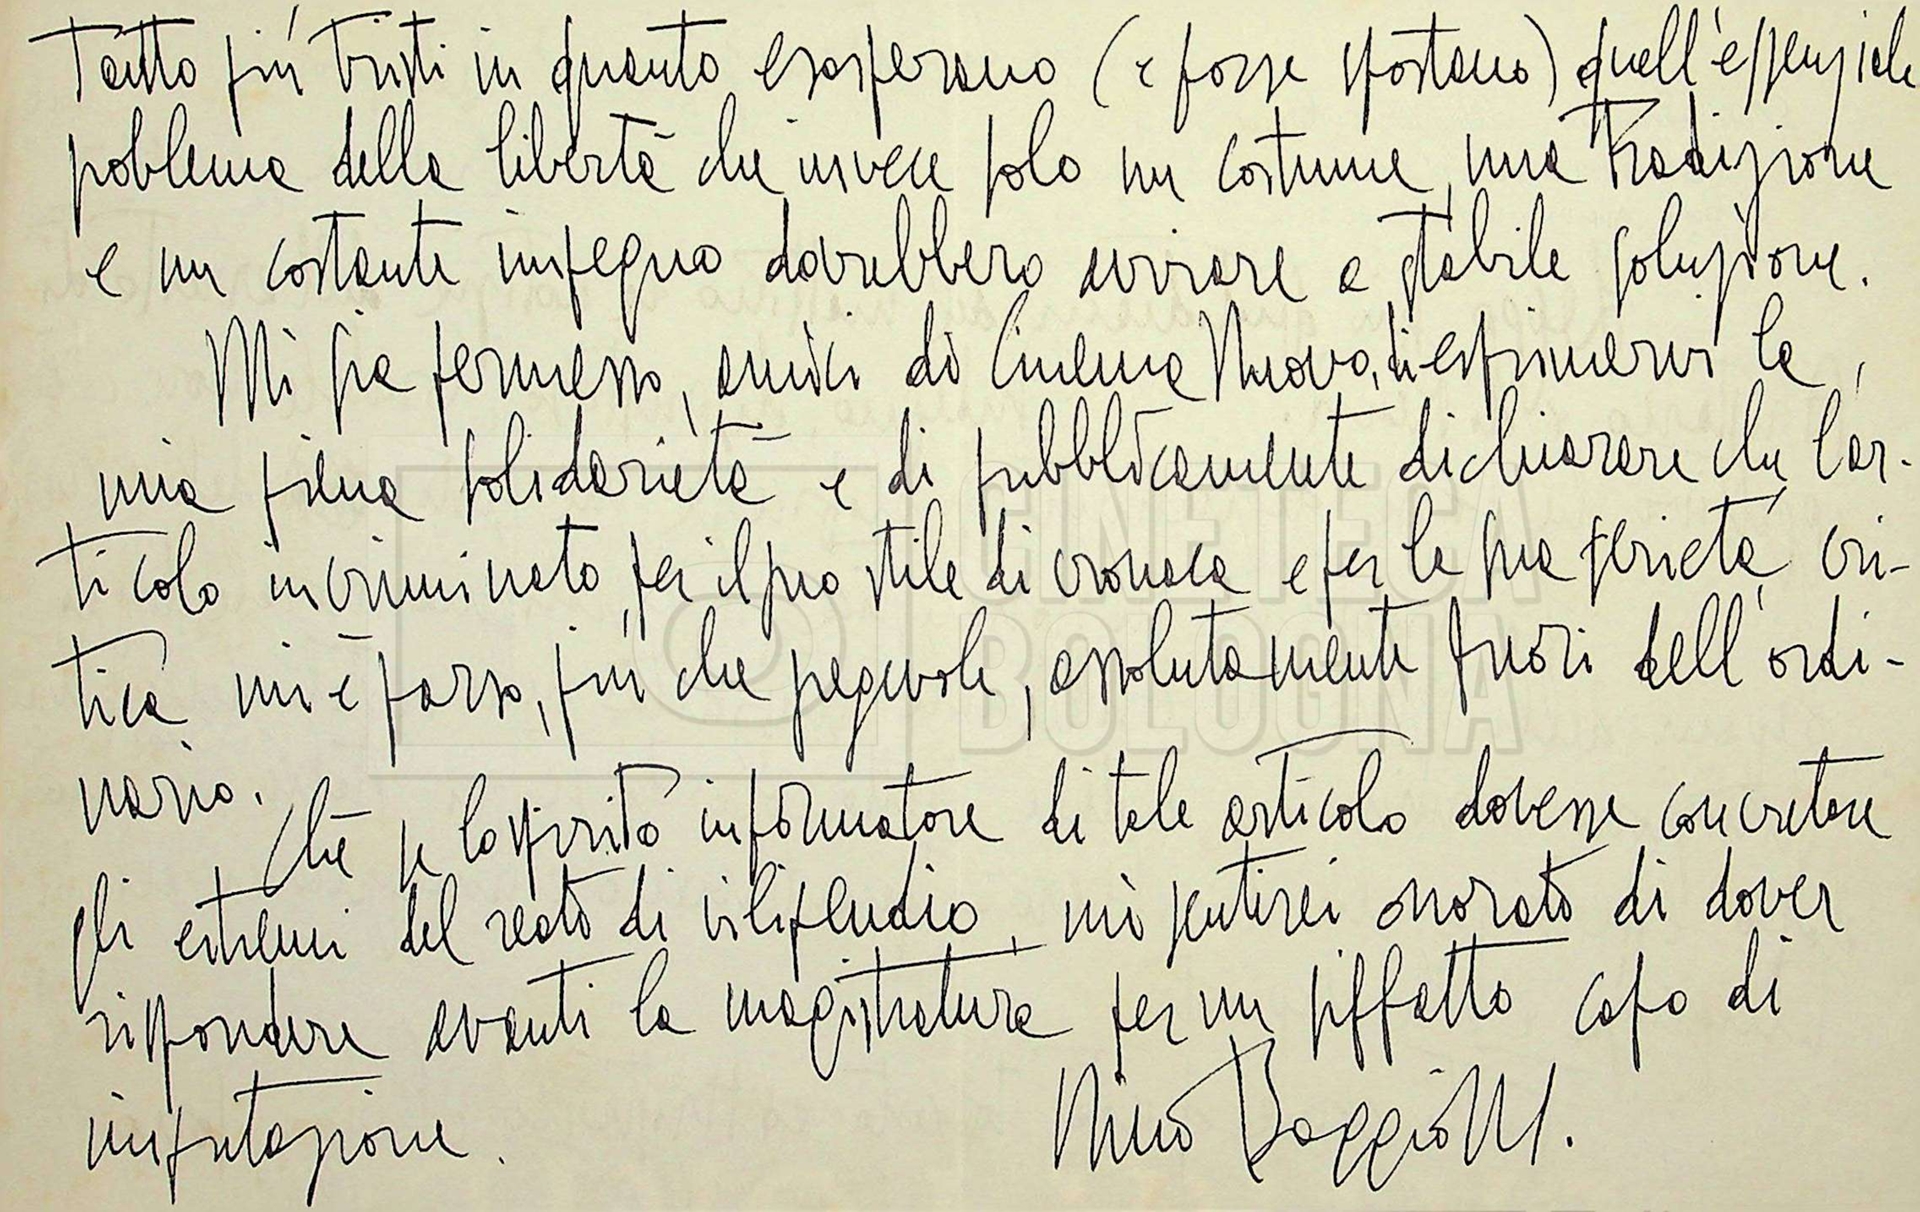 Tanto più tristi in quanto esasperano (e forse spostano) quell'essenziale
problema della libertà che invece solo un costume, una tradizione
e un costante impegno dovrebbero avviare a stabile soluzione.
Mi sia permesso, amici di Cinema Nuovo, di esprimervi la
mia piena solidarietà e di pubblicamente dichiarare che l'ar-
ticolo incriminato, per il suo stile di cronaca e per la sua serietà cri-
tica mi è parso, più che pregevole, assolutamente fuori dell'ordi-
nario.
Chè se lo spirito informatore di tale articolo dovesse concretare
gli estremi del reato di vilipendio, mi sentirei onorato di dover
rispondere avanti la magistratura per un siffatto capo di
imputazione.
Nino
CINETECA
BOLOGNA